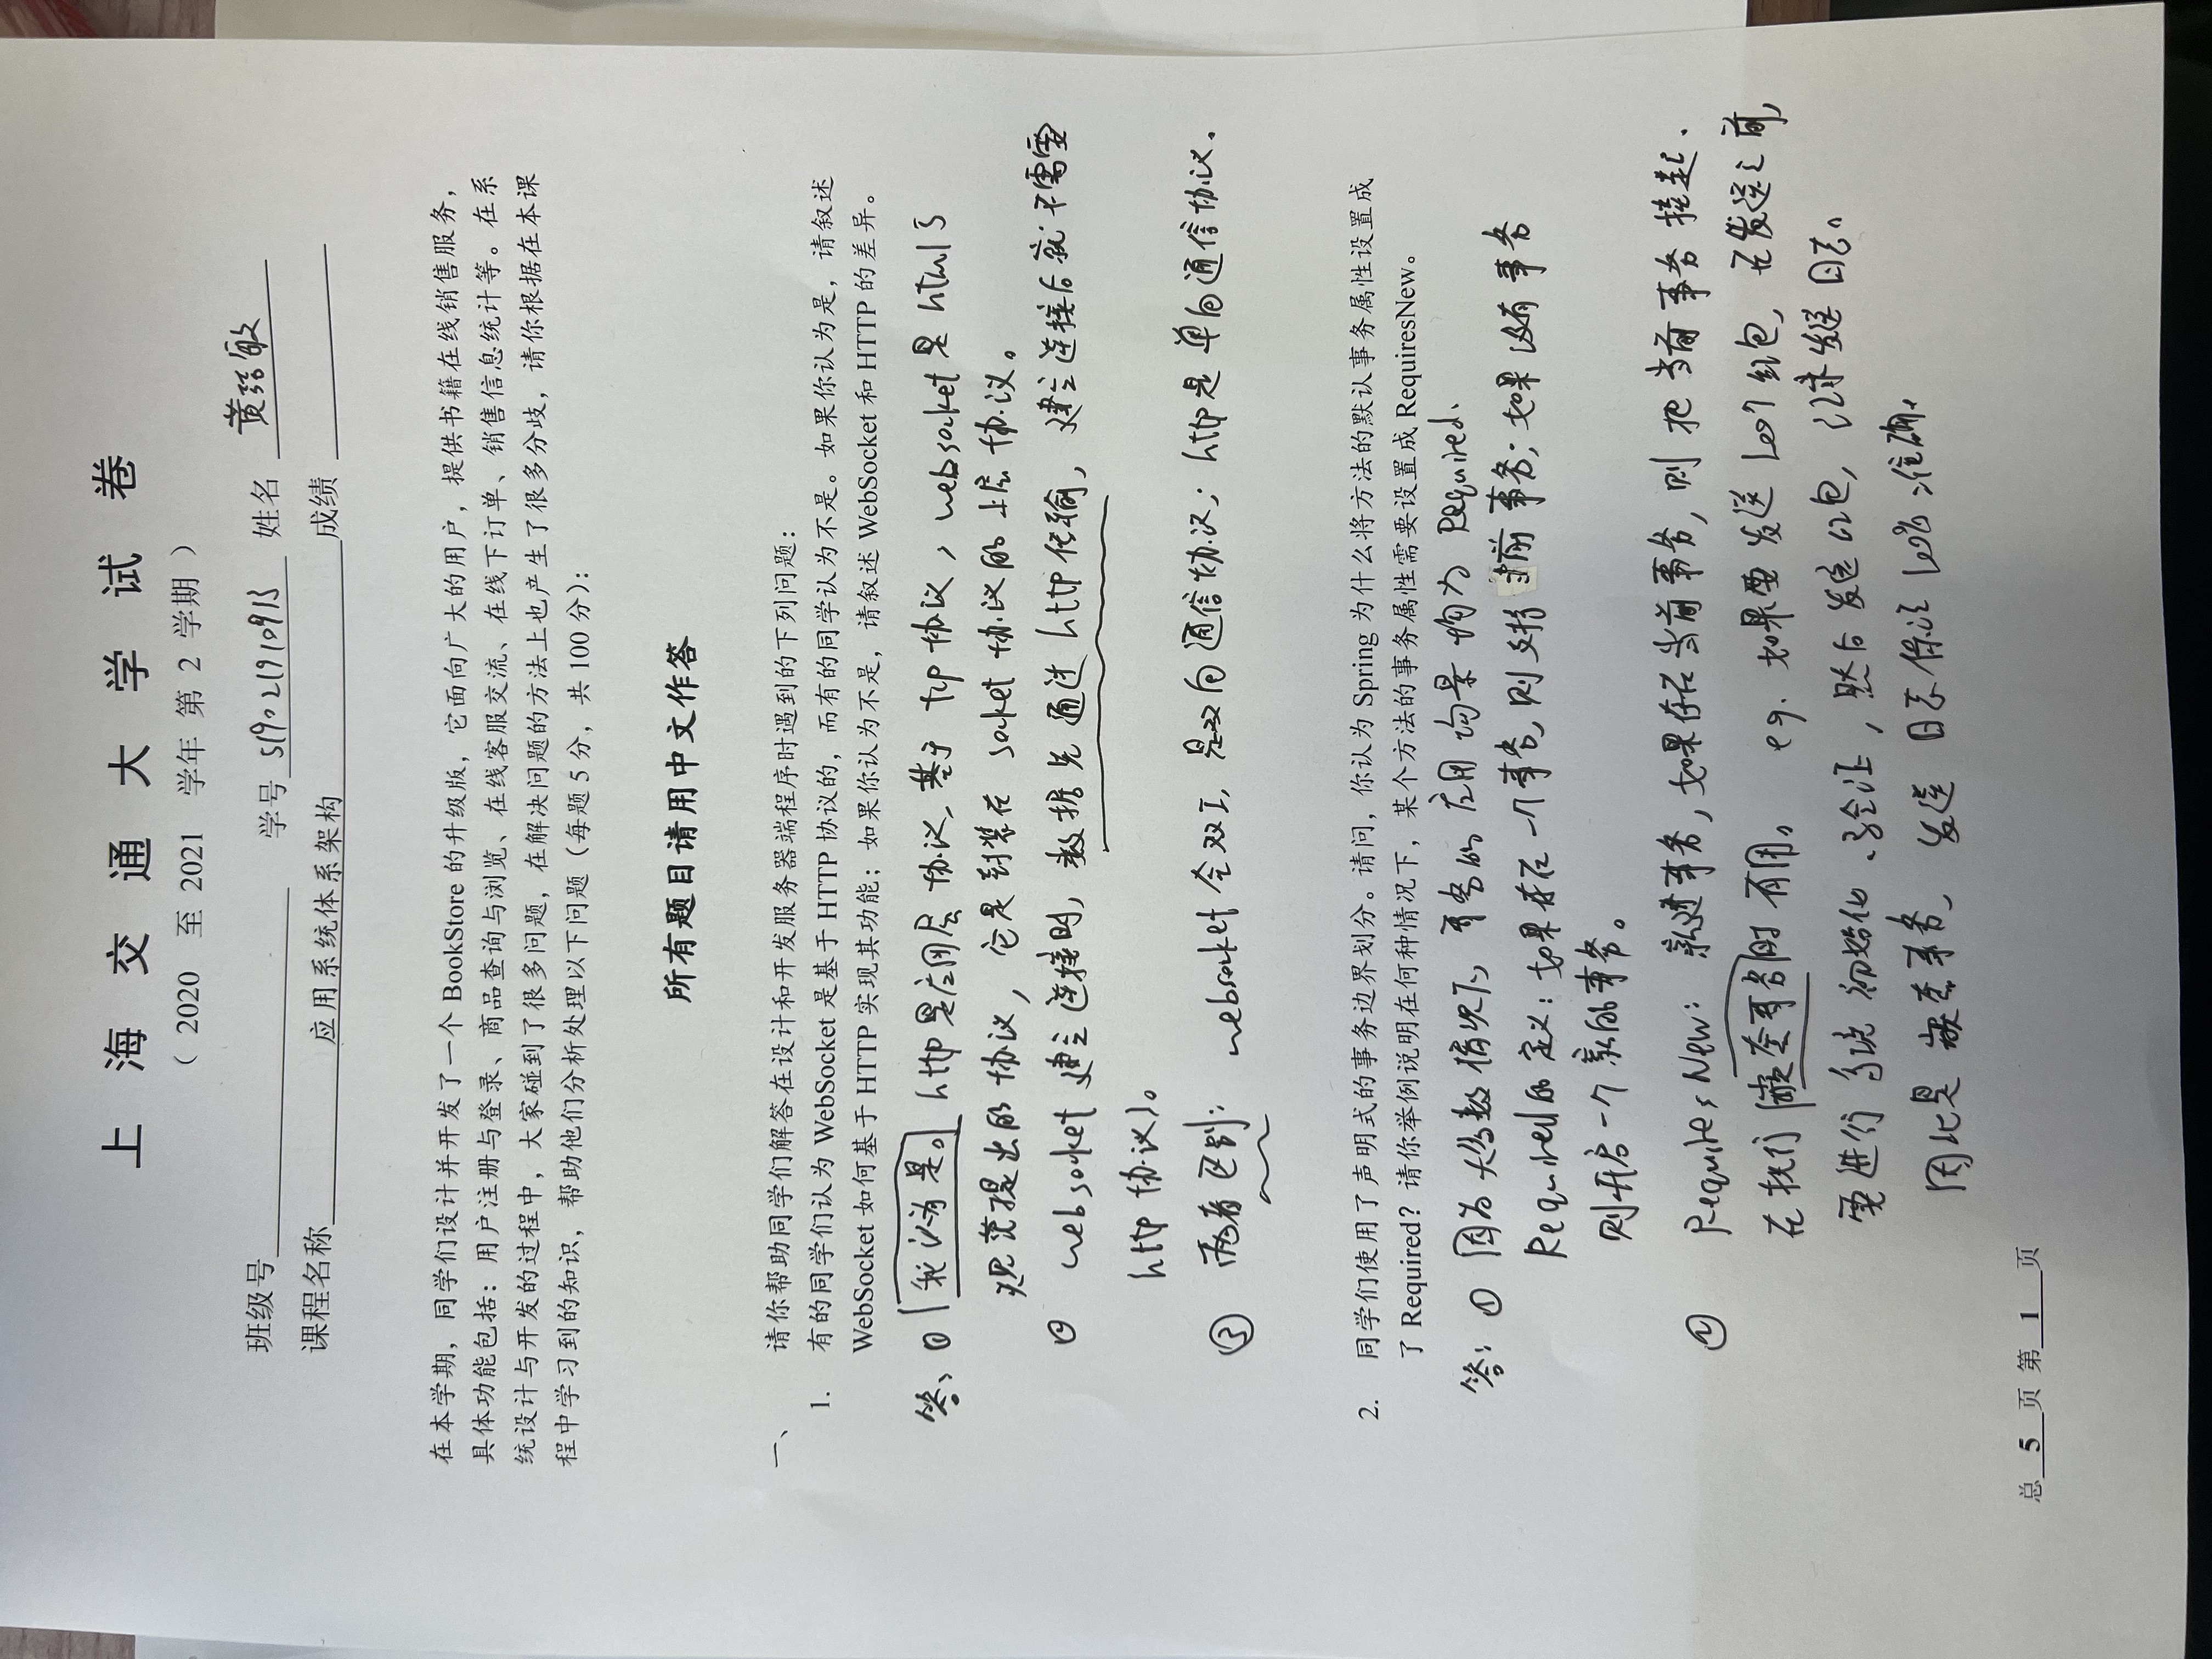 上海交通大学试卷
（ 2020 至 2021 学年 第 2 学期 ）
班级号 学号 519021910913 姓名 黄喆敏
课程名称 应用系统体系架构 成绩
在本学期，同学们设计并开发了一个 BookStore 的升级版，它面向广大的用户，提供书籍在线销售服务，
具体功能包括：用户注册与登录、商品查询与浏览、在线客服交流、在线下订单、销售信息统计等。在系
统设计与开发的过程中，大家碰到了很多问题，在解决问题的方法上也产生了很多分歧，请你根据在本课
程中学习到的知识，帮助他们分析处理以下问题（每题 5 分，共 100 分）：
所有题目请用中文作答
一、 请你帮助同学们解答在设计和开发服务器端程序时遇到的下列问题：
1. 有的同学们认为 WebSocket 是基于 HTTP 协议的，而有的同学认为不是。如果你认为是，请叙述
WebSocket 如何基于 HTTP 实现其功能；如果你认为不是，请叙述 WebSocket 和 HTTP 的差异。
答：① 我认为是。http是应用层协议，基于 tcp 协议，websocket是 html5
规范提出的协议，它是封装在 socket 协议的上层协议。
② websocket 建立连接时，数据先通过 http 传输，建立连接后就不需要
http 协议了。
③ 两者区别： websocket 全双工，是双向通信协议；http是单向通信协议。
2. 同学们使用了声明式的事务边界划分。请问，你认为 Spring 为什么将方法的默认事务属性设置成
了 Required？请你举例说明在何种情况下，某个方法的事务属性需要设置成 RequiresNew。
答：① 因为大多数情况下，事务的应用场景均为 Required.
Required的定义：如果存在一个事务，则支持当前事务；如果没有事务
则开启一个新的事务。
② RequiresNew：新建事务，如果存在当前事务，则把当前事务挂起.
在执行嵌套事务时有用。 eg. 如果要发送100个红包，在发送之前，
要进行系统初始化、验证，然后发送红包，记录发送日志。
因此是嵌套事务，发送日志保证100%准确.
总 5 页 第 1 页